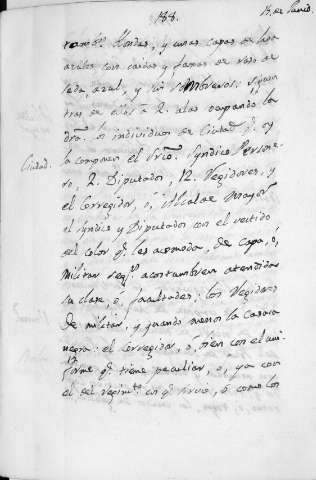 188.
13. de Junio.
y unas capas de
azules con caidas y
seda azul, y sin sombreros: siguen
tras de ellos a 2. alas ocupando la
dra. los individuos de Ciudad q. oy
Ciudad.
la componen el Srio. Syndico Persone-
ro, 2. Diputados, 12. Regidores, y
el Corregidor, ó, Alcalde mayor
el syndico y Diputados con el vestido
del color q. les acomoda, de capa, ó,
militar segn. acostumbren atendidas
su clase, ó, facultades: los Regidores
de militar, y quando menos la casaca
negra: el Corregidor, o, bien con el uni-
forme q. tiene peculiar, o, ya con
el del regimto. en q. sirvió, ó como los